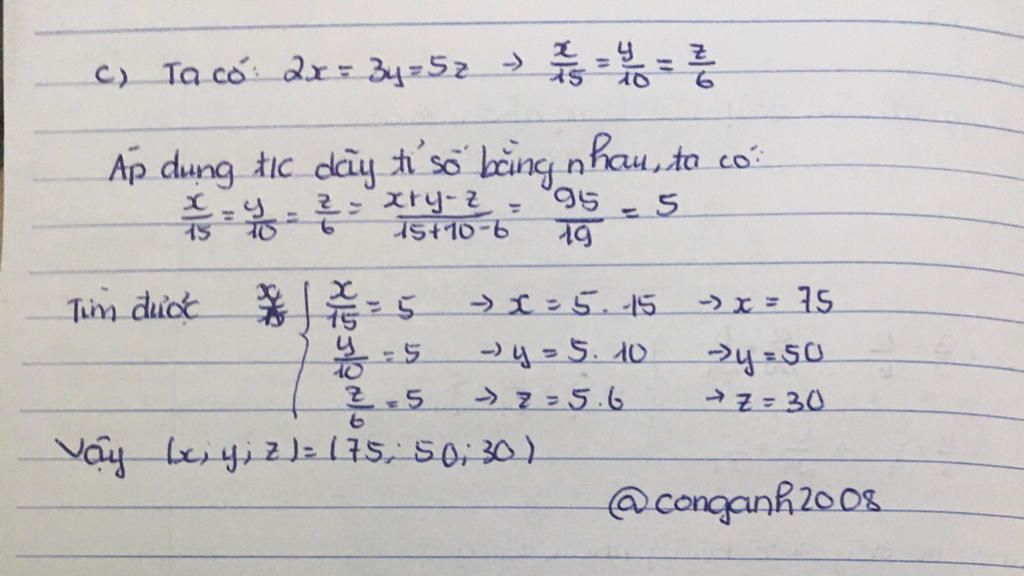 c) Ta có: 2x = 3y = 5z → x/15 = y/10 = z/6
Áp dụng t/c dãy tỉ số bằng nhau, ta có:
x/15 = y/10 = z/6 = x+y-z/15+10-6 = 95/19 = 5
Tìm được { x/15 = 5 → x = 5.15 → x = 75
y/10 = 5 → y = 5.10 → y = 50
z/6 = 5 → z = 5.6 → z = 30
Vậy (x; y; z) = (75; 50; 30)
@conganh2008